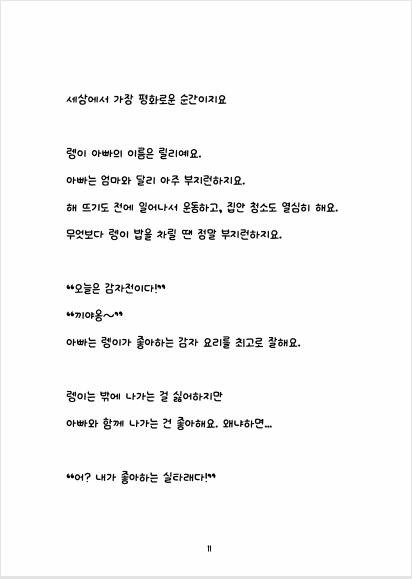 세상에서 가장 평화로운 순간이지요
렝이 아빠의 이름은 릴리예요.
아빠는 엄마와 달리 아주 부지런하지요.
해 뜨기도 전에 일어나서 운동하고, 집안 청소도 열심히 해요.
무엇보다 렝이 밥을 차릴 땐 정말 부지런하지요.
“오늘은 감자전이다!”
“끼야옹~”
아빠는 렝이가 좋아하는 감자 요리를 최고로 잘해요.
렝이는 밖에 나가는 걸 싫어하지만
아빠와 함께 나가는 건 좋아해요. 왜냐하면...
“어? 내가 좋아하는 실타래다!”
11